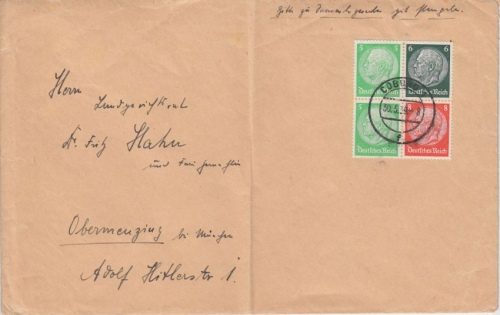 Bitte zu Sammelzwecken gut stempeln.
5 6
Deutsches Reich Deutsches Reich
5 8
Deutsches Reich Deutsches Reich
Herrn
Landgerichtsrat
Dr. Fritz Hahn
und Frau Gemahlin
Obermenzing bei München
Adolf Hitlerstr 1.